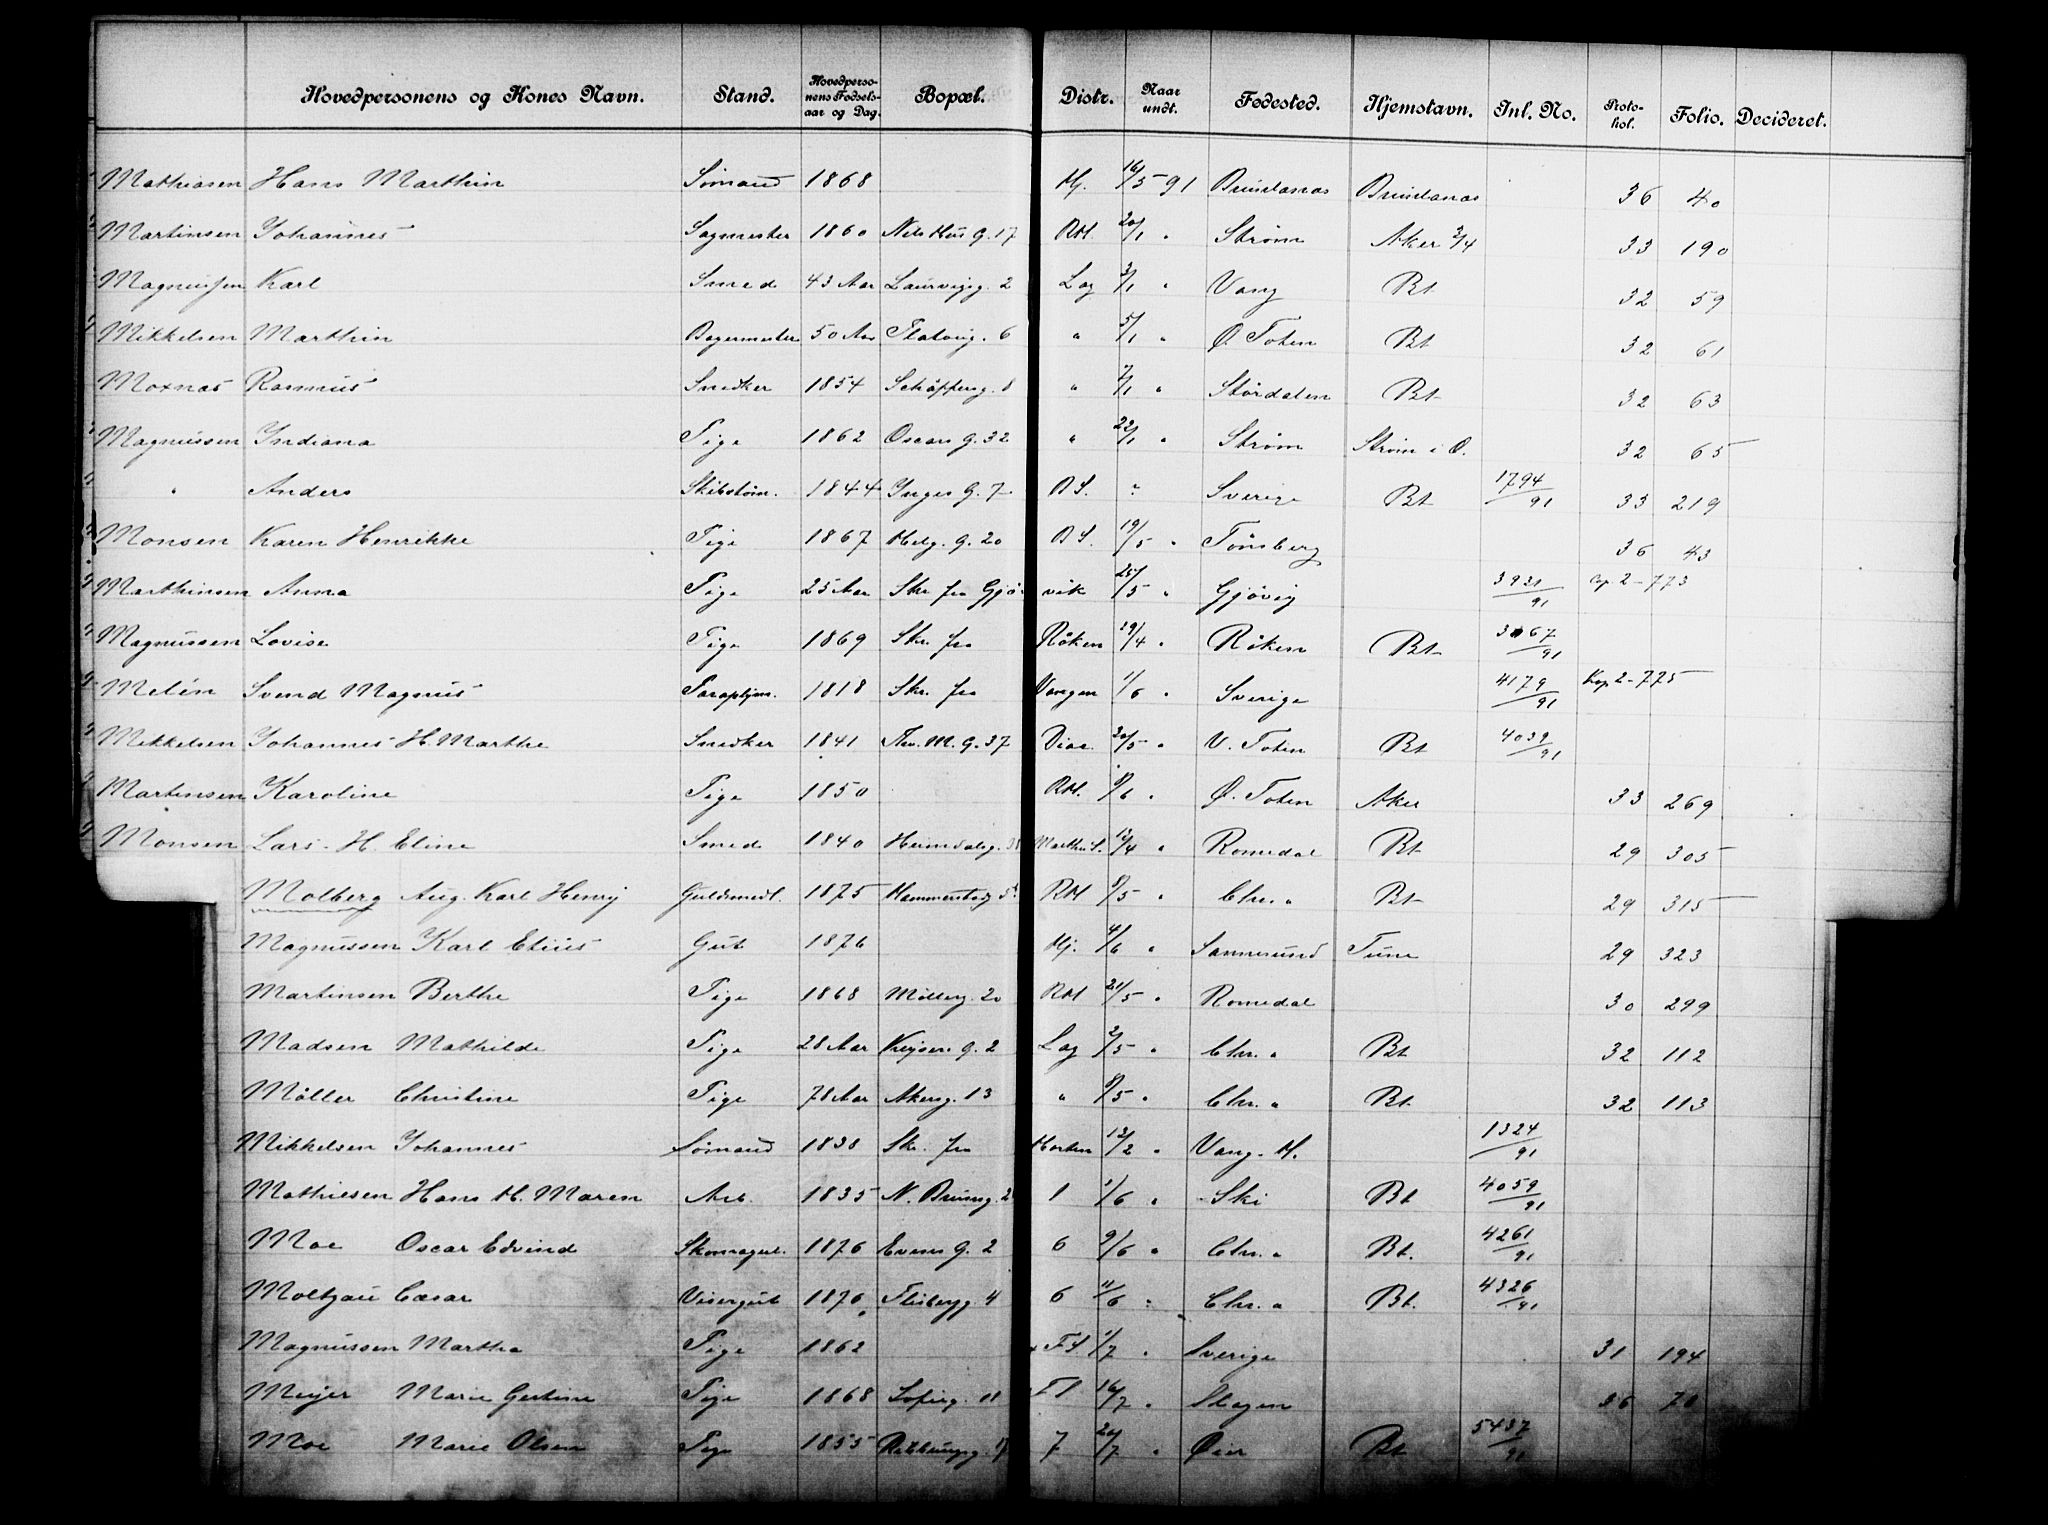 Hovedpersonens og Kones Navn. Stand. Hovedpersonens Fødselsaar og Dag. Bopæl. Distr. Naar undt. Fødested. Hjemstavn. Inl. No. Protokol. Folio. Decideret.
Mathiasen Hans Marthin Sømand 1868 Hj. 16/5 91 36 40
Martinsen Johannes Sagmester 1860 Nils Hus G. 17 RM. 20/1 " Strøm Aker 3/4 33 190
Magnussen Karl Smed 43 Aar Laurvigg. 2 Lag 3/1 " Vang Bt 32 59
Mikkelsen Marthin Bagermester 50 Aar 6 " 5/1 " Ø. Toten Bt 32 61
Moxnas Rasmus Snedker 1854 8 " 7/1 " Størdalen Bt 32 63
Magnussen Indiana Pige 1862 Oscars G. 32 " 22/1 " Strøm Strøm i O. 32 65
" Anders Skibstøm. 1844 Inges G. 7 BS. " Sverige Bt 1794/91 33 219
Monsen Karen Henrikke Pige 1867 Helg. G. 20 BS. 19/5 " Tønsberg 36 43
Marthinsen Anna Pige 25 Aar Skr. fra Gjøvik 25/5 " Gjøvig 3931/91 Kop 2-773
Magnussen Lovise Pige 1869 Skr. fra Røken 19/4 " Røken Bt 3067/91
Melén Svend Magnus 1818 Skr. fra Vangen 1/6 " Sverige 4179/91 Kop 2-775
Mikkelsen Johannes H. Marthe Snedker 1841 Thv. M. G. 37 Diac. 20/5 " V. Toten Bt 4039/91
Martinsen Karoline Pige 1850 RM. 9/6 " Ø. Toten Aker 33 269
Monsen Lars H. Eline Smed 1840 Heimdalsg. 13/4 " Romedal Bt 29 305
Molberg Aug. Karl Henry Guldsmedl. 1875 RM 8/5 " Chr. a Bt 29 315
Magnussen Karl Elius Gut 1876 Hj. 4/6 " Sannesund Tune 29 323
Martinsen Berthe Pige 1868 Møllerg. 20 RM 21/5 " Romedal 30 299
Madsen Mathilde Pige 28 Aar Keysers G. 2 Lag 2/5 " Chr. a Bt 32 112
Møller Christine Pige 78 Aar Akersg. 13 " 9/5 " Chr. a Bt 32 113
Mikkelsen Johannes Sømand 1838 Skr. fra Horten 12/2 " Vang. H. 1324/91
Mathiesen Hans H. Maren Arb. 1835 N. 1 1/6 " Ski Bt 4059/91
Moe Oscar Edvind 1876 Evens G. 2 6 9/6 " Chr. a Bt. 4261/91
Moltzau Cæsar Visergut 1876 4 6 11/6 " Chr. a Bt. 4326/91
Magnussen Martha Pige 1862 FS 1/7 " Sverige 31 194
Meyer Marie Gestine Pige 1868 Sofieg. 11 16/7 " Slagen 36
Moe Marie Olsen Pige 1855 7 20/7 " Øier Bt 5437/91